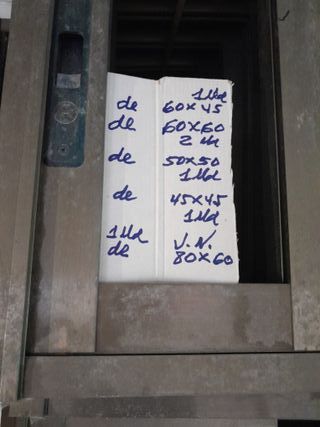 1 Ud
de 60x45
de 60x60
2 Ud
de 50x50
1 Ud
de 45x45
1 Ud
1 Ud V.N.
de 80x60